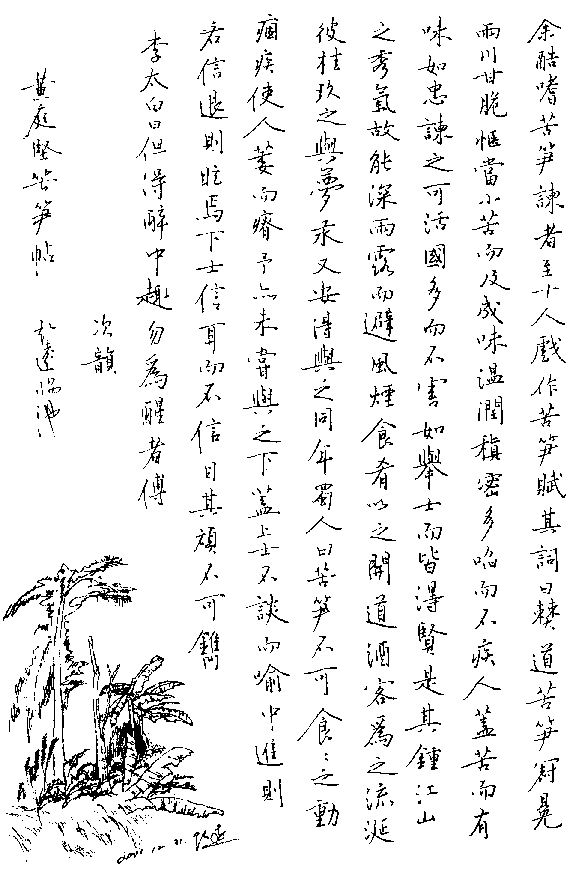 余酷嗜苦笋諫者至十人戲作苦笋賦其詞曰僰道苦笋冠冕
兩川甘脆愜當小苦而反成味溫潤稹密多啗而不疾人蓋苦而有
味如忠諫之可活國多而不害如舉士而皆得賢是其鍾江山
之秀氣故能深雨露而避風煙食肴以之開道酒客為之流涎
彼桂玖之與夢汞又安得與之同年蜀人曰苦笋不可食〻之動
痼疾使人萎而瘠予亦未嘗與之下蓋上士不談而喻中進則
若信退則眩焉下士信耳而不信目其頑不可鐫
李太白曰但得醉中趣勿為醒者傳
次韻
黃庭堅苦笋帖